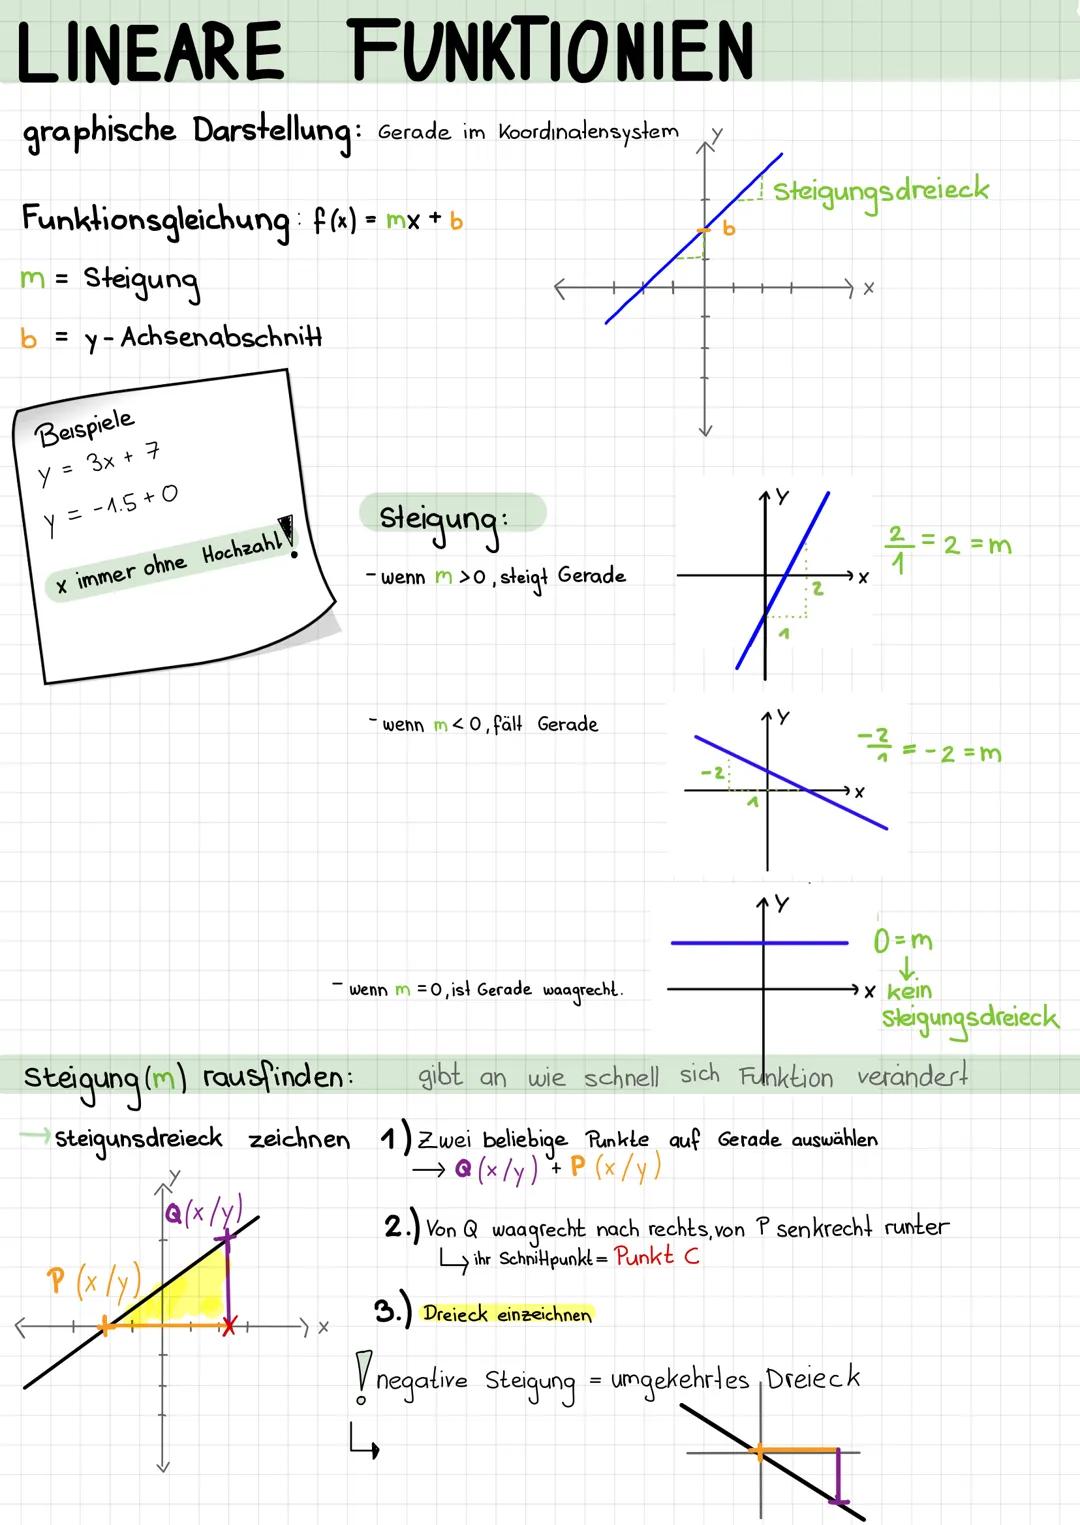 LINEARE FUNKTIONIEN
graphische Darstellung: Gerade im Koordinatensystem
y
Steigungsdreieck
b
x
Funktionsgleichung: f(x) = mx + b
m = Steigung
b = y-Achsenabschnitt
Beispiele
y = 3x + 7
y = -1.5 + 0
x immer ohne Hochzahl!
Steigung:
- wenn m >0, steigt Gerade
Y
x
2
1
2/1 = 2 = m
- wenn m < 0, fält Gerade
Y
x
-2
1
-2/1 = -2 = m
- wenn m = 0, ist Gerade waagrecht.
Y
x
0 = m
↓
kein
Steigungsdreieck
Steigung (m) rausfinden: gibt an wie schnell sich Funktion verändert
→ Steigunsdreieck zeichnen
y
Q(x/y)
P (x/y)
x
1) Zwei beliebige Punkte auf Gerade auswählen
→ Q (x/y) + P (x/y)
2.) Von Q waagrecht nach rechts, von P senkrecht runter
↳ ihr Schnittpunkt = Punkt C
3.) Dreieck einzeichnen
! negative Steigung = umgekehrtes Dreieck
↳